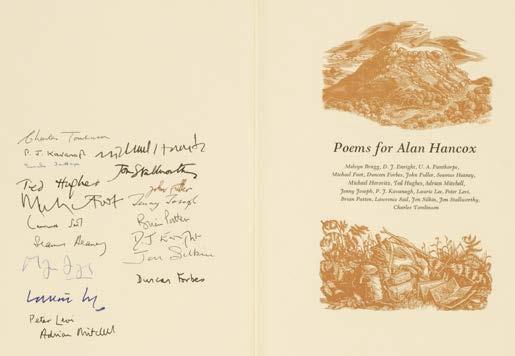 Charles Tomlinson
P. J. Kavanagh
Michael Horovitz
Jon Stallworthy
Ted Hughes
John Fuller
Michael Foot
Jenny Joseph
Brian Patten
Seamus Heaney
D J Enright
Jon Silkin
Laurie Lee
Duncan Forbes
Peter Levi
Adrian Mitchell
Poems for Alan Hancox
Melvyn Bragg, D. J. Enright, U. A. Fanthorpe,
Michael Foot, Duncan Forbes, John Fuller, Seamus Heaney,
Michael Horovitz, Ted Hughes, Adrian Mitchell,
Jenny Joseph, P. J. Kavanagh, Laurie Lee, Peter Levi,
Brian Patten, Lawrence Sail, Jon Silkin, Jon Stallworthy,
Charles Tomlinson